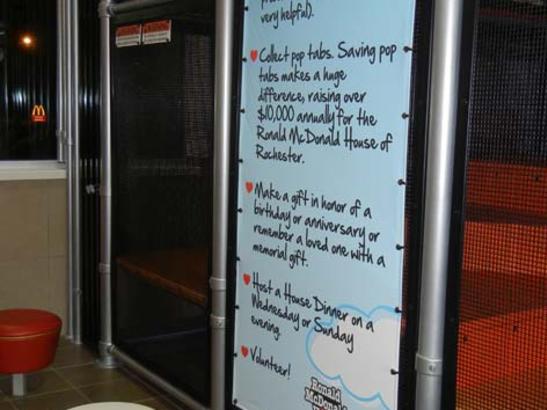 very helpful).
Collect pop tabs. Saving pop
tabs makes a huge
difference, raising over
$10,000 annually for the
Ronald McDonald House of
Rochester.
Make a gift in honor of a
birthday or anniversary or
remember a loved one with a
memorial gift.
Host a House Dinner on a
Wednesday or Sunday
evening.
Volunteer!
Ronald
McDonald